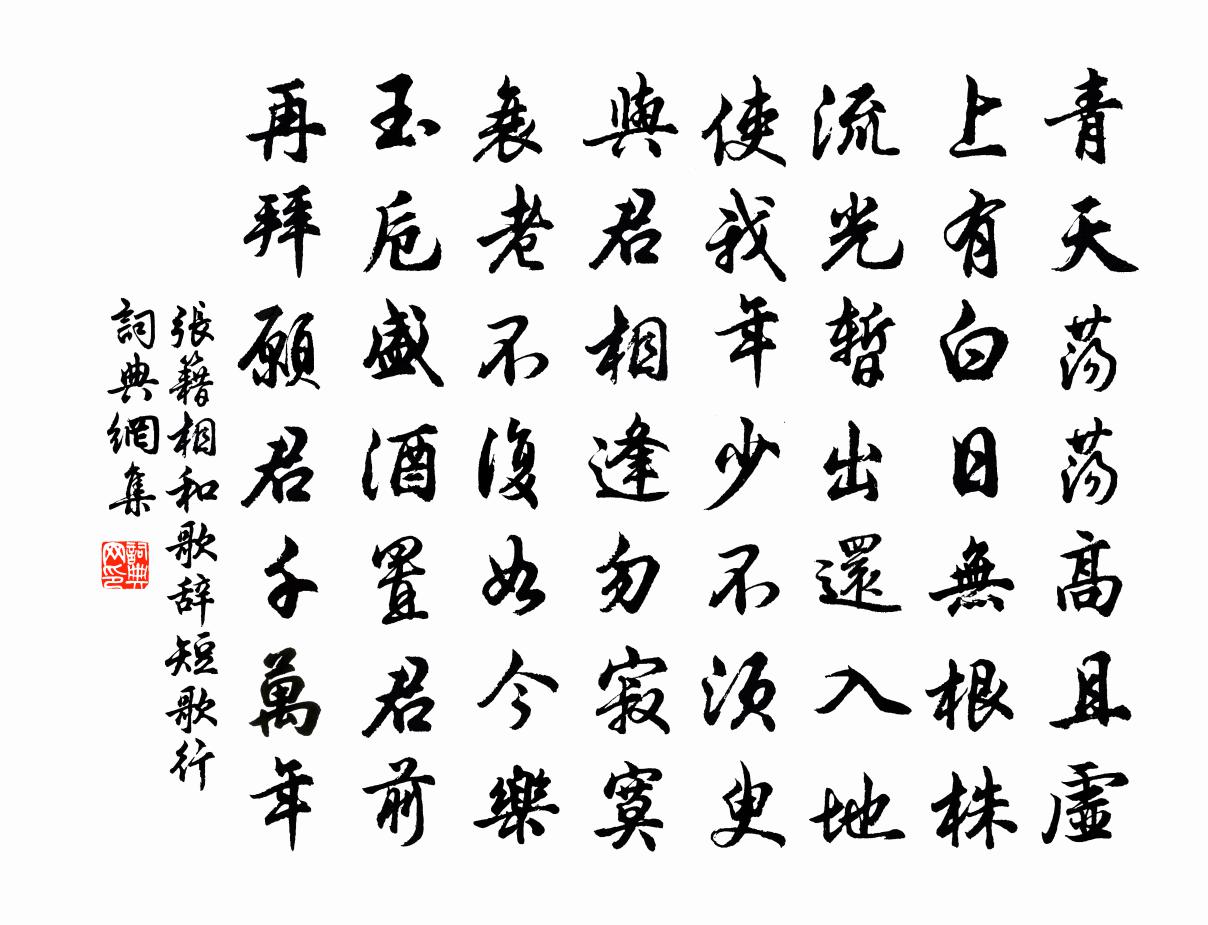 青天蕩蕩高且虛
上有白日無根株
流光暫出還入地
使我年少不須臾
與君相逢勿寂寞
衰老不復如今樂
玉卮盛酒置君前
再拜願君千萬年
張籍相和歌辞短歌行
詞典網集
詞典网印